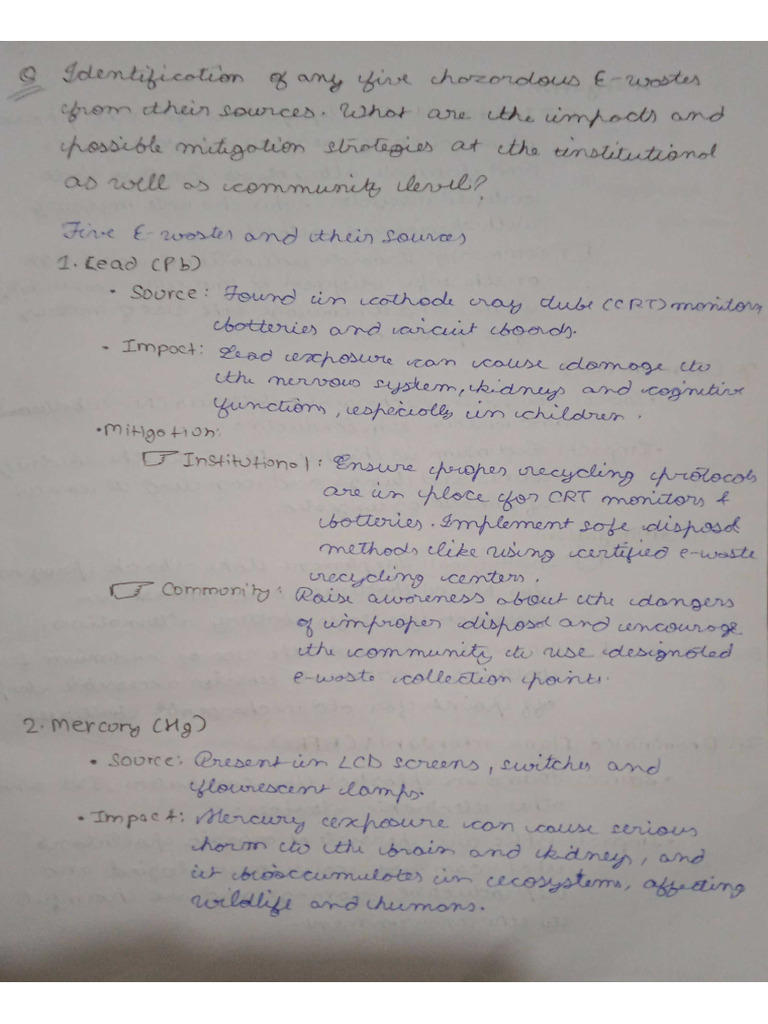 Q Identification of any five hazardous E-wastes
from their sources. What are the impacts and
possible mitigation strategies at the institutional
as well as community level?
Five E-wastes and their sources
1. Lead (Pb)
• Source: Found in cathode ray tube (CRT) monitors,
batteries and circuit boards.
• Impact: Lead exposure can cause damage to
the nervous system, kidneys and cognitive
functions, especially in children.
• Mitigation:
☞ Institutional: Ensure proper recycling protocols
are in place for CRT monitors &
batteries. Implement safe disposal
methods like using certified e-waste
recycling centers.
☞ Community: Raise awareness about the dangers
of improper disposal and encourage
the community to use designated
e-waste collection points.
2. Mercury (Hg)
• Source: Present in LCD screens, switches and
flourescent lamps.
• Impact: Mercury exposure can cause serious
harm to the brain and kidney, and
it bioaccumulates in ecosystems, affecting
wildlife and humans.